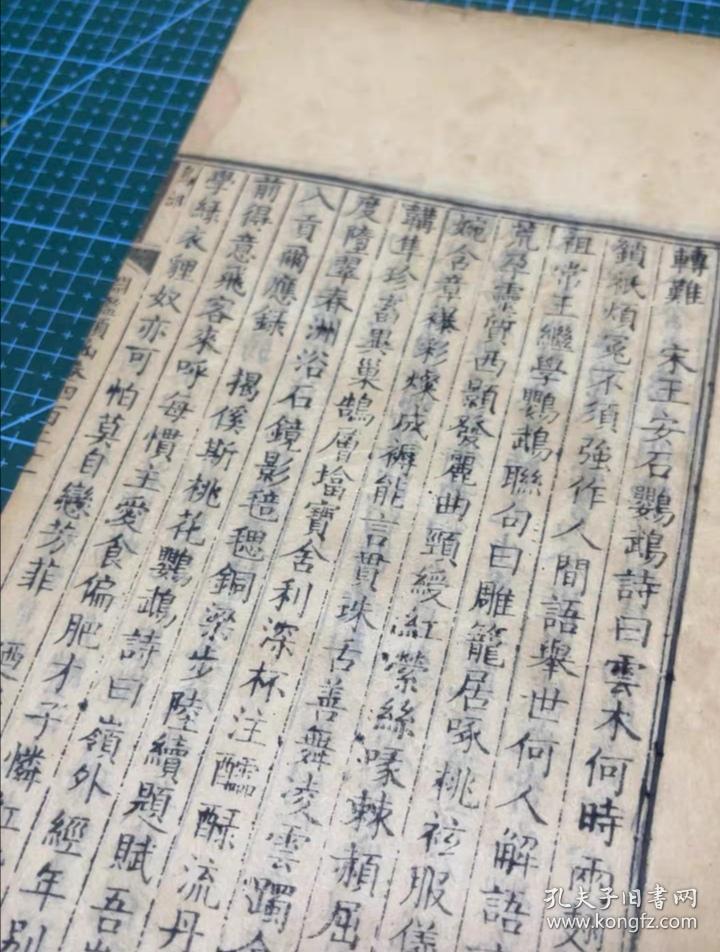 轉難 宋王安石鸚鵡詩曰雲木何時兩
鎖祇煩冤不須強作人間語舉世何人解語
祖常王繼學鸚鵡聯句曰雕籠居啄桃袨服儀
荒孕靈質西顥發麗曲頸綬紅縈絲喙棘頳屈
婉含章襮彩燦成褥能言貫珠舌善舞凌雲躅
韝隼珍畜異巢鵠層墖寶舍利深杯注醽醁流丹
度隴翠春洲浴石鏡影毰毸銅梁步陸續題賦吾
入貢爾應錄 揭傒斯桃花鸚鵡詩曰嶺外經年別
前得意飛客來呼每慣主愛食偏肥才子憐紅
學綠衣貍奴亦可怕莫自戀芳菲
淵鑑類函卷四百二十
孔夫子旧書网
www.kongfz.com